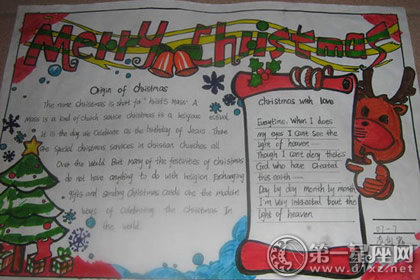 Merry Christmas
Origin of Christmas
The name christmas is short for "hrist's mass". A
mass is a kind of church service christmas is a religious
It is the day we celebrate as the birthday of Jesus There
are special christmas services in christian churches all
Over the world. But many of the festivities of christmas
do not have anything to do with religion Exchanging
gifts and sending Christmas cards are the modern
ways of celebrating the christmas In
the world.
Christmas with love
Everytime When I does
my eyes I can't see the
light of heaven
Though I can't deny there's
God who have Created
this earth
Day by day month by month
I'm very interested 'bout the
light of heaven
07-7
第一星座网
www.d1xz.net